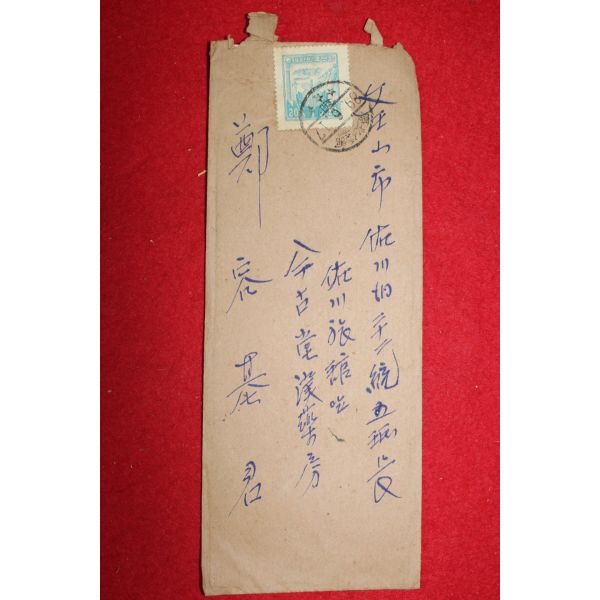 釜山市 佐川洞 二十二統 五班長
佐川旅館 앞
今古堂漢藥房
鄭 容 基 君